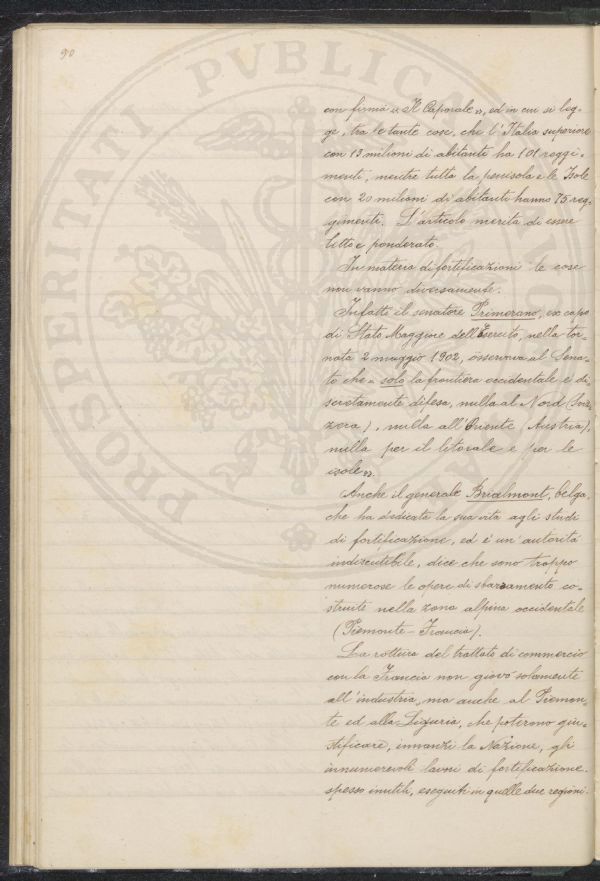 90
con firma « Il Caporale », ed in cui si leg-
ge, tra le tante cose, che l'Italia superiore
con 13 milioni di abitanti ha 101 reggi-
menti, mentre tutta la penisola e le Isole
con 20 milioni di abitanti hanno 75 reg-
gimenti. L'articolo merita di essere
letto e ponderato.
In materia di fortificazioni le cose
non vanno diversamente.
Infatti il senatore Primerano, ex capo
di Stato Maggiore dell'Esercito, nella tor-
nata 2 maggio 1902, osservava al Sena-
to che « solo la frontiera occidentale è di-
scretamente difesa, nulla al Nord (Sviz-
zera), nulla all'Oriente (Austria),
nulla per il litorale e per le
isole ».
Anche il generale Brialmont, belga,
che ha dedicata la sua vita agli studi
di fortificazione, ed è un'autorità
indiscutibile, dice che sono troppo
numerose le opere di sbarramento co-
struite nella zona alpina occidentale
(Piemonte - Francia).
La rottura del trattato di commercio
con la Francia non giovò solamente
all'industria, ma anche al Piemon-
te ed alla Liguria, che poterono giu-
stificare, innanzi la Nazione, gli
innumerevoli lavori di fortificazione,
spesso inutili, eseguiti in quelle due regioni.
PROSPERITATI PVBLICAE